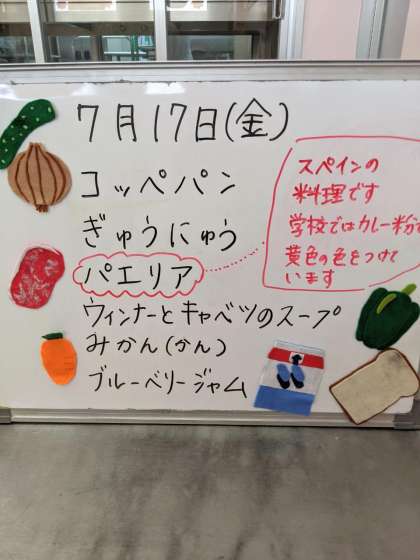 7月17日(金)
コッペパン
ぎゅうにゅう
パエリア
スペインの
料理です
学校ではカレー粉で
黄色の色をつけて
います
ウィンナーとキャベツのスープ
みかん(かん)
ブルーベリージャム